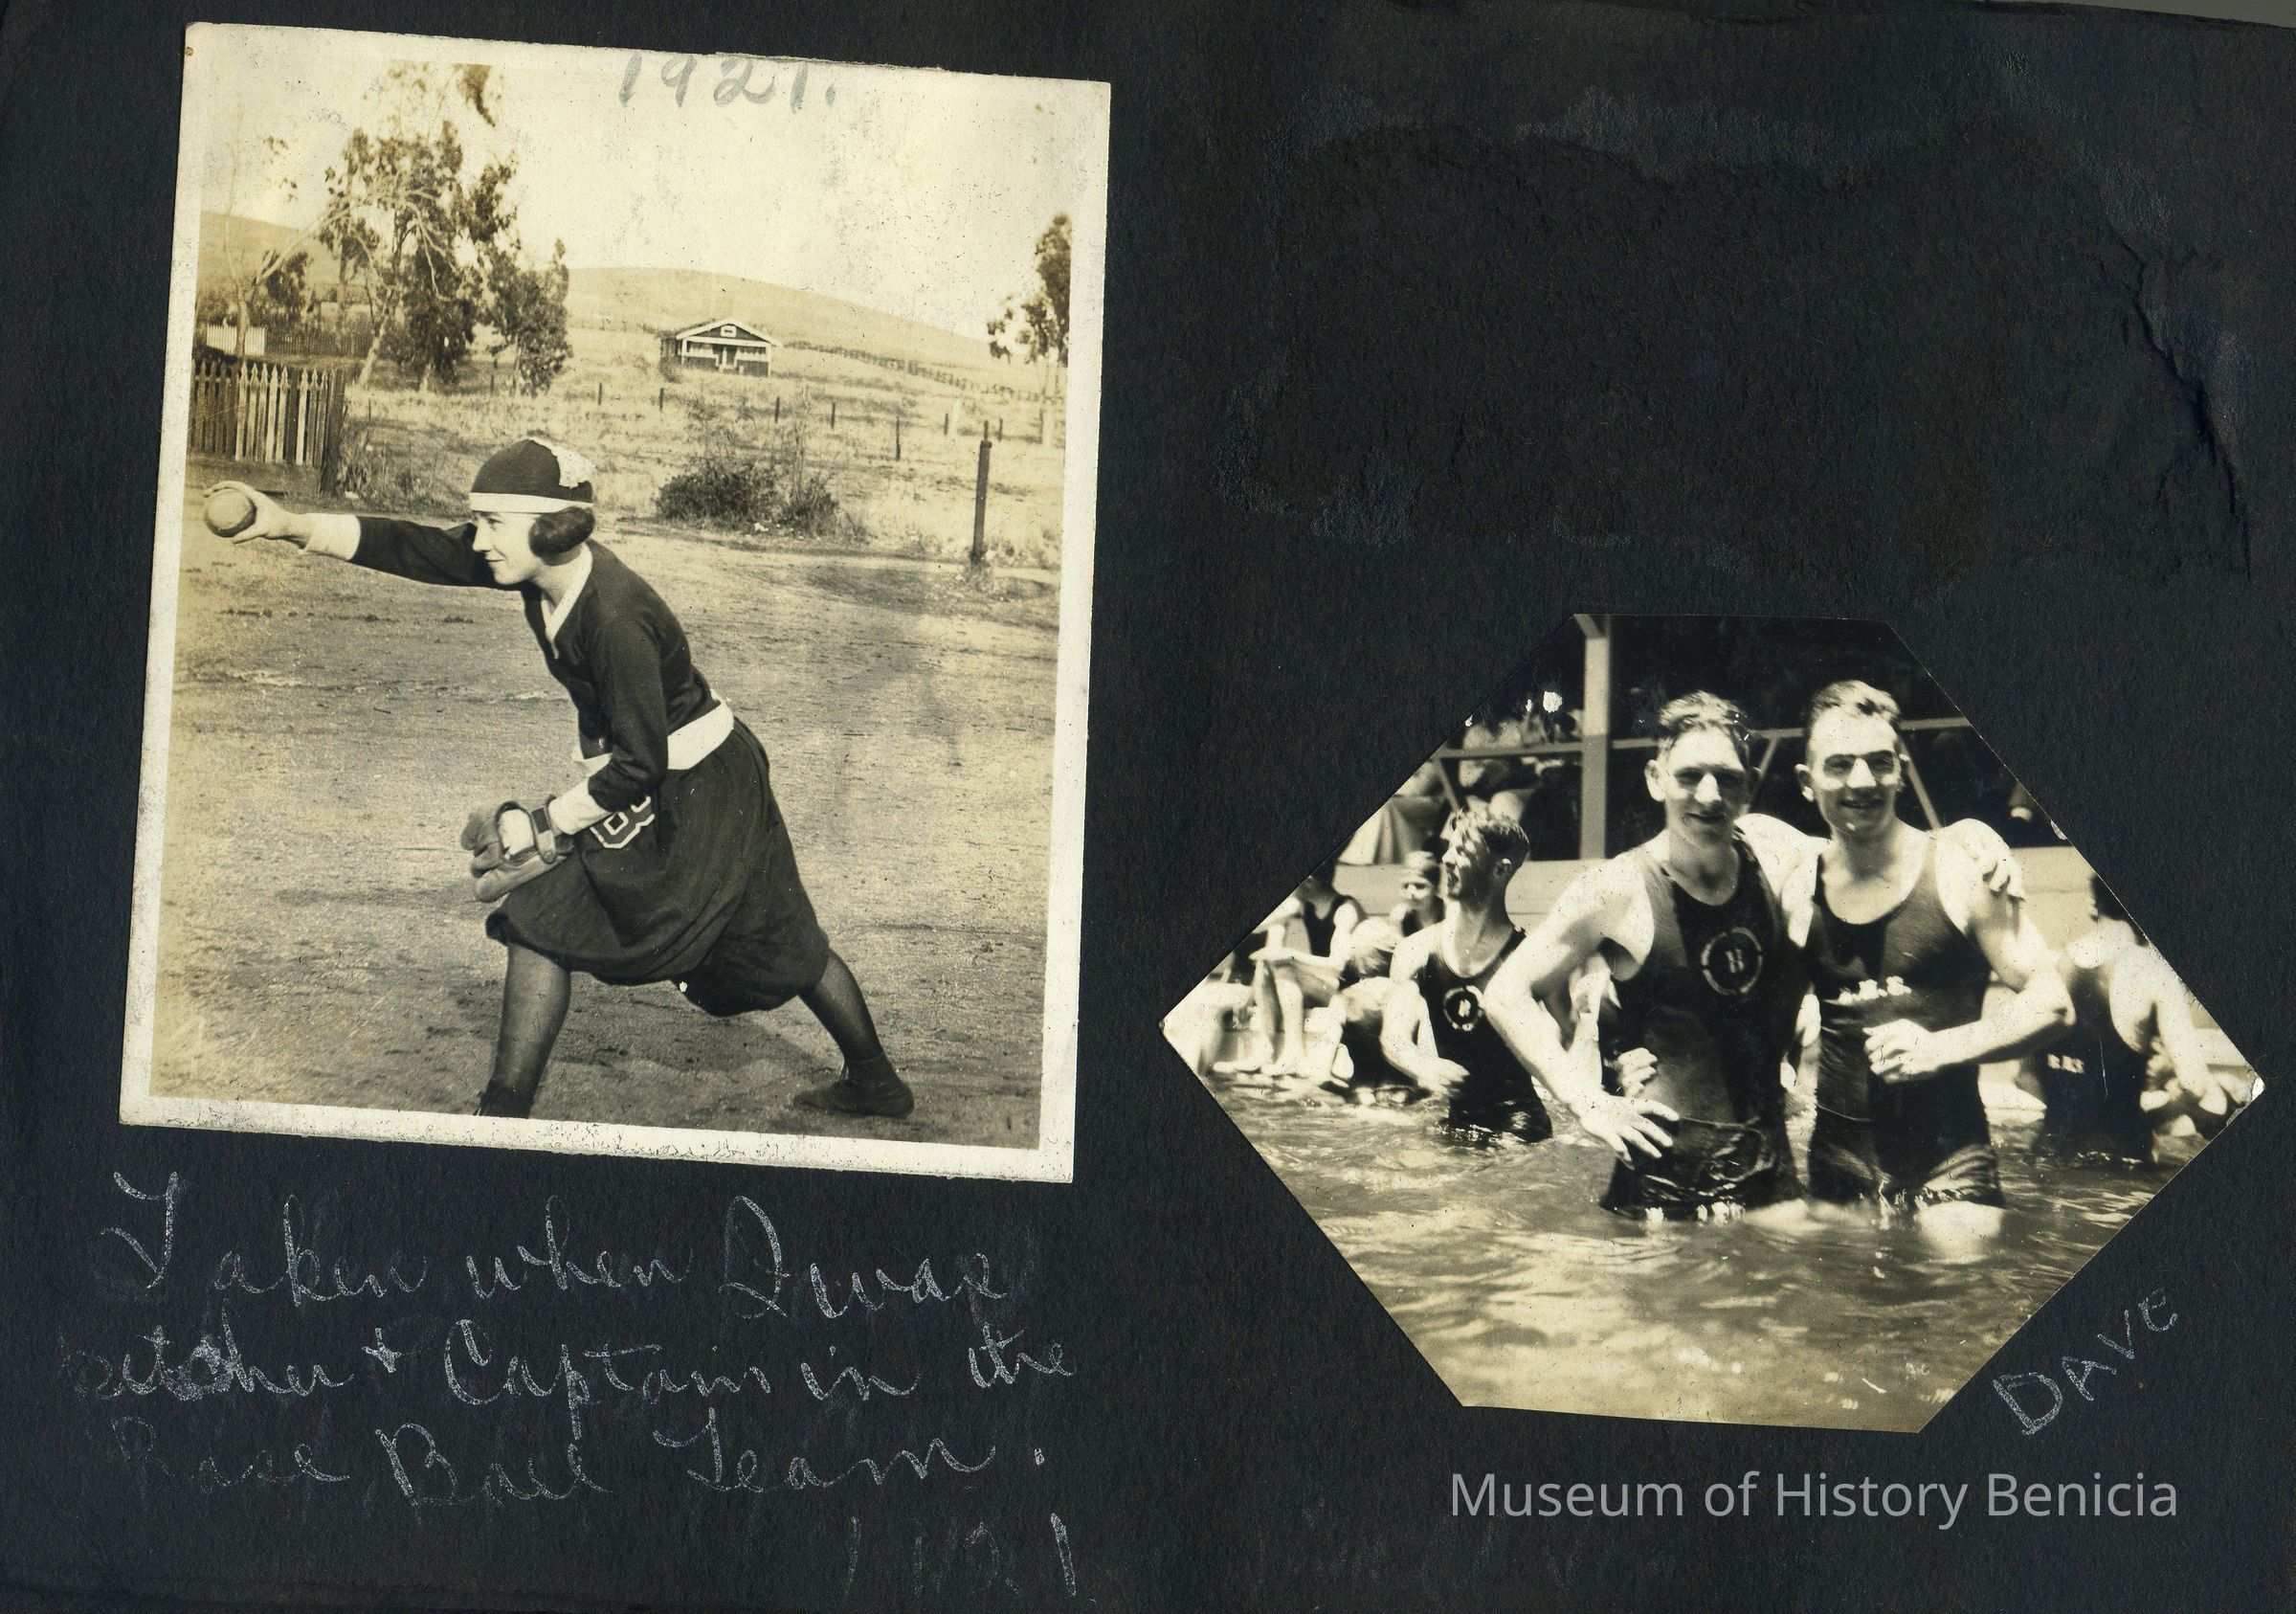 1921.
B
Taken when I was
pitcher & Captain in the
Base Ball Team.
1921
DAVE
Museum of History Benicia